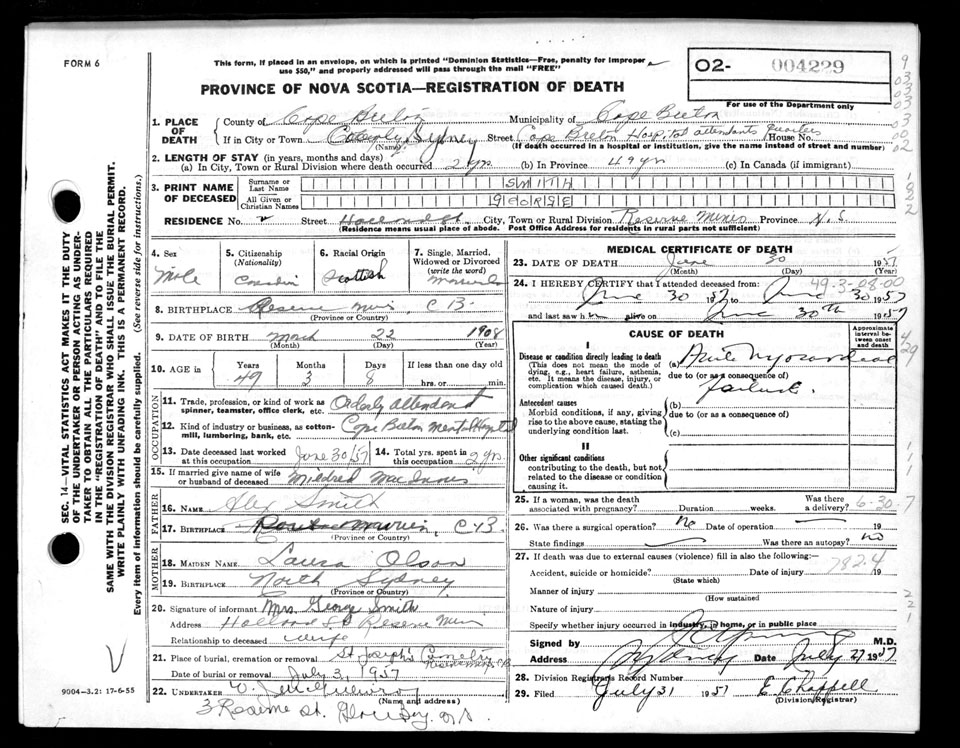 FORM 6
This form, if placed in an envelope, on which is printed "Dominion Statistics—Free, penalty for improper
use $50," and properly addressed will pass through the mail "FREE"
02- 004229
PROVINCE OF NOVA SCOTIA—REGISTRATION OF DEATH
For use of the Department only
1. PLACE OF DEATH
County of Cape Breton Municipality of Cape Breton
If in City or Town Sydney Street Cape Breton Hospital attendants quarters House No.
(Name) (If death occurred in a hospital or institution, give the name instead of street and number)
2. LENGTH OF STAY (in years, months and days)
(a) In City, Town or Rural Division where death occurred 2 yrs. (b) In Province 49 yrs (c) In Canada (if immigrant)
3. PRINT NAME OF DECEASED
Surname or Last Name SMITH
All Given or Christian Names GEORGE
RESIDENCE No. Street City, Town or Rural Division Reserve Mines Province N.S
(Residence means usual place of abode. Post Office Address for residents in rural parts not sufficient)
4. Sex
Male
5. Citizenship
(Nationality)
Canadian
6. Racial Origin
Scottish
7. Single, Married,
Widowed or Divorced
(write the word)
Married
8. BIRTHPLACE Reserve Mines, C B.
(Province or Country)
9. DATE OF BIRTH March 22 1908
(Month) (Day) (Year)
10. AGE in Years Months Days If less than one day old
49 3 8 hrs. or min.
OCCUPATION
11. Trade, profession, or kind of work as
spinner, teamster, office clerk, etc. Orderly Attendant
12. Kind of industry or business, as cotton-
mill, lumbering, bank, etc. Cape Breton Mental Hospital
13. Date deceased last worked
at this occupation June 30/57
14. Total yrs. spent in
this occupation 2 yrs.
15. If married give name of wife
or husband of deceased Mildred MacInnis
FATHER
16. NAME Alex Smith
17. BIRTHPLACE C B
(Province or Country)
MOTHER
18. MAIDEN NAME Laura Olson
19. BIRTHPLACE North Sydney
(Province or Country)
20. Signature of informant Mrs. George Smith
Address Reserve Mines
Relationship to deceased wife
21. Place of burial, cremation or removal St Joseph's Cemetery
Reserve Mines CB
Date of burial or removal July 3, 1957
22. UNDERTAKER
(Name and address)
Reserve St. Glace Bay. N.S.
9004—3.21: 17-6-55
MEDICAL CERTIFICATE OF DEATH
23. DATE OF DEATH June 30 1957
(Month) (Day) (Year)
49-3-08-00
24. I HEREBY CERTIFY that I attended deceased from:
June 30 1957 to June 30 1957
and last saw h alive on June 30th 1957
CAUSE OF DEATH
Approximate
interval be-
tween onset
and death
I
Disease or condition directly leading to death
(This does not mean the mode of
dying, e.g., heart failure, asthenia,
etc. It means the disease, injury, or
complication which caused death.)
(a) Acute Myocardial
due to (or as a consequence of)
failure.
Antecedent causes
Morbid conditions, if any, giving
rise to the above cause, stating the
underlying condition last.
(b)
due to (or as a consequence of)
(c)
II
Other significant conditions
contributing to the death, but not
related to the disease or condition
causing it.
25. If a woman, was the death
associated with pregnancy? Duration weeks. Was there
a delivery? 6-30-7
26. Was there a surgical operation? No Date of operation 19
State findings Was there an autopsy? no
27. If death was due to external causes (violence) fill in also the following:—
782.4
Accident, suicide or homicide? Date of injury 19
(State which)
Manner of injury
(How sustained
Nature of injury
Specify whether injury occurred in industry, in home, or in public place
Signed by M.D.
Address Sydney Date July 27 1957
28. Division Registrars Record Number
29. Filed July 31 1957 E Chappell
(Division Registrar)
SEC. 14—VITAL STATISTICS ACT MAKES IT THE DUTY
OF THE UNDERTAKER OR PERSON ACTING AS UNDER-
TAKER TO OBTAIN ALL THE PARTICULARS REQUIRED
IN THE "REGISTRATION OF DEATH" AND TO FILE THE
SAME WITH THE DIVISION REGISTRAR WHO SHALL ISSUE THE BURIAL PERMIT.
WRITE PLAINLY WITH UNFADING INK. THIS IS A PERMANENT RECORD.
Every item of information should be carefully supplied. (See reverse side for instructions).